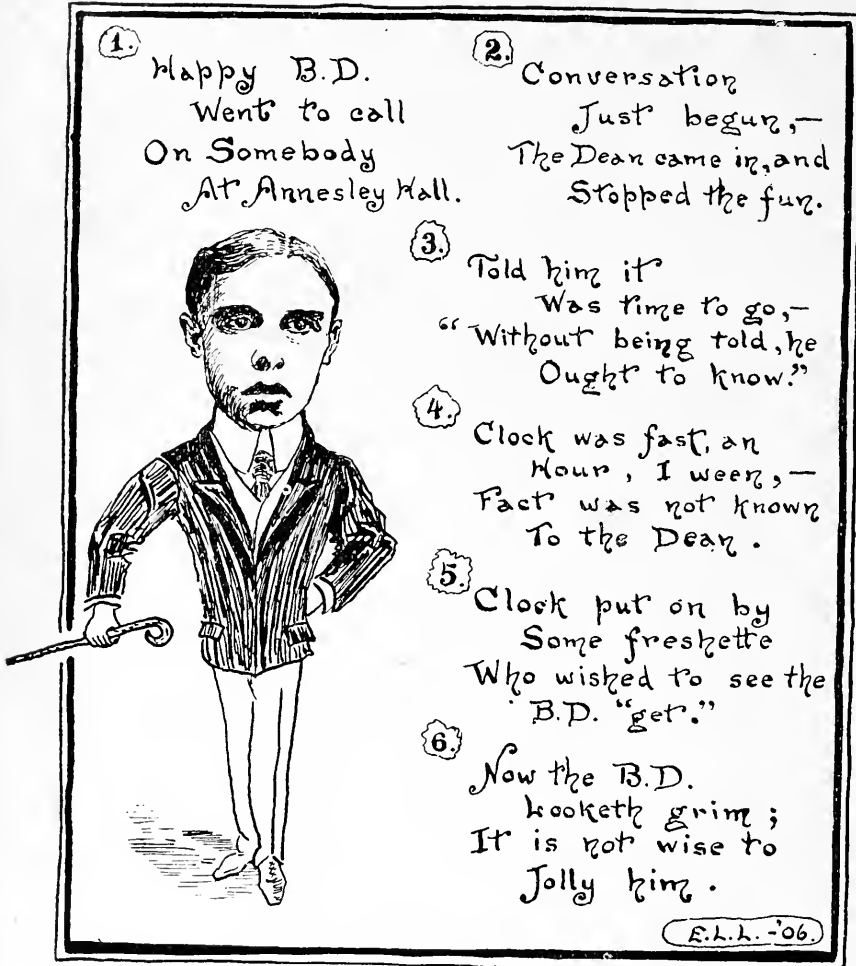 1.
Happy B.D.
Went to call
On Somebody
At Annesley Hall.
2.
Conversation
Just begun,—
The Dean came in, and
Stopped the fun.
3.
Told him it
Was time to go,—
“Without being told, he
Ought to know.”
4.
Clock was fast, an
Hour, I ween,—
Fact was not known
To the Dean.
5.
Clock put on by
Some freshette
Who wished to see the
B.D. “get.”
6.
Now the B.D.
Looketh grim;
It is not wise to
Jolly him.
E.L.L. -'06.